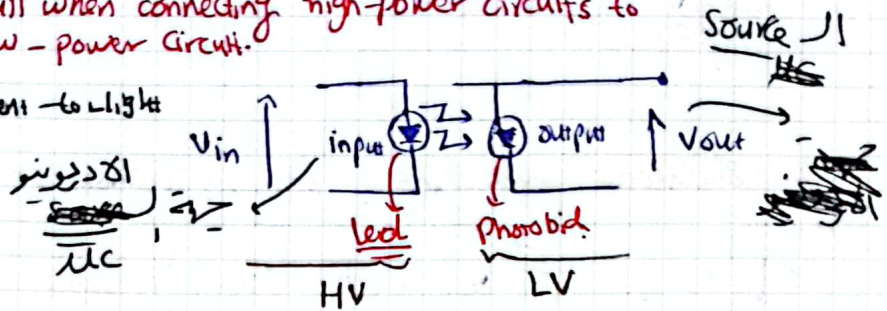 when connecting high-power circuits to
w-power circuit.
Source ال
to light
Vin
input
output
Vout
الاردوينو
Led
Photobid
µc
HV
LV